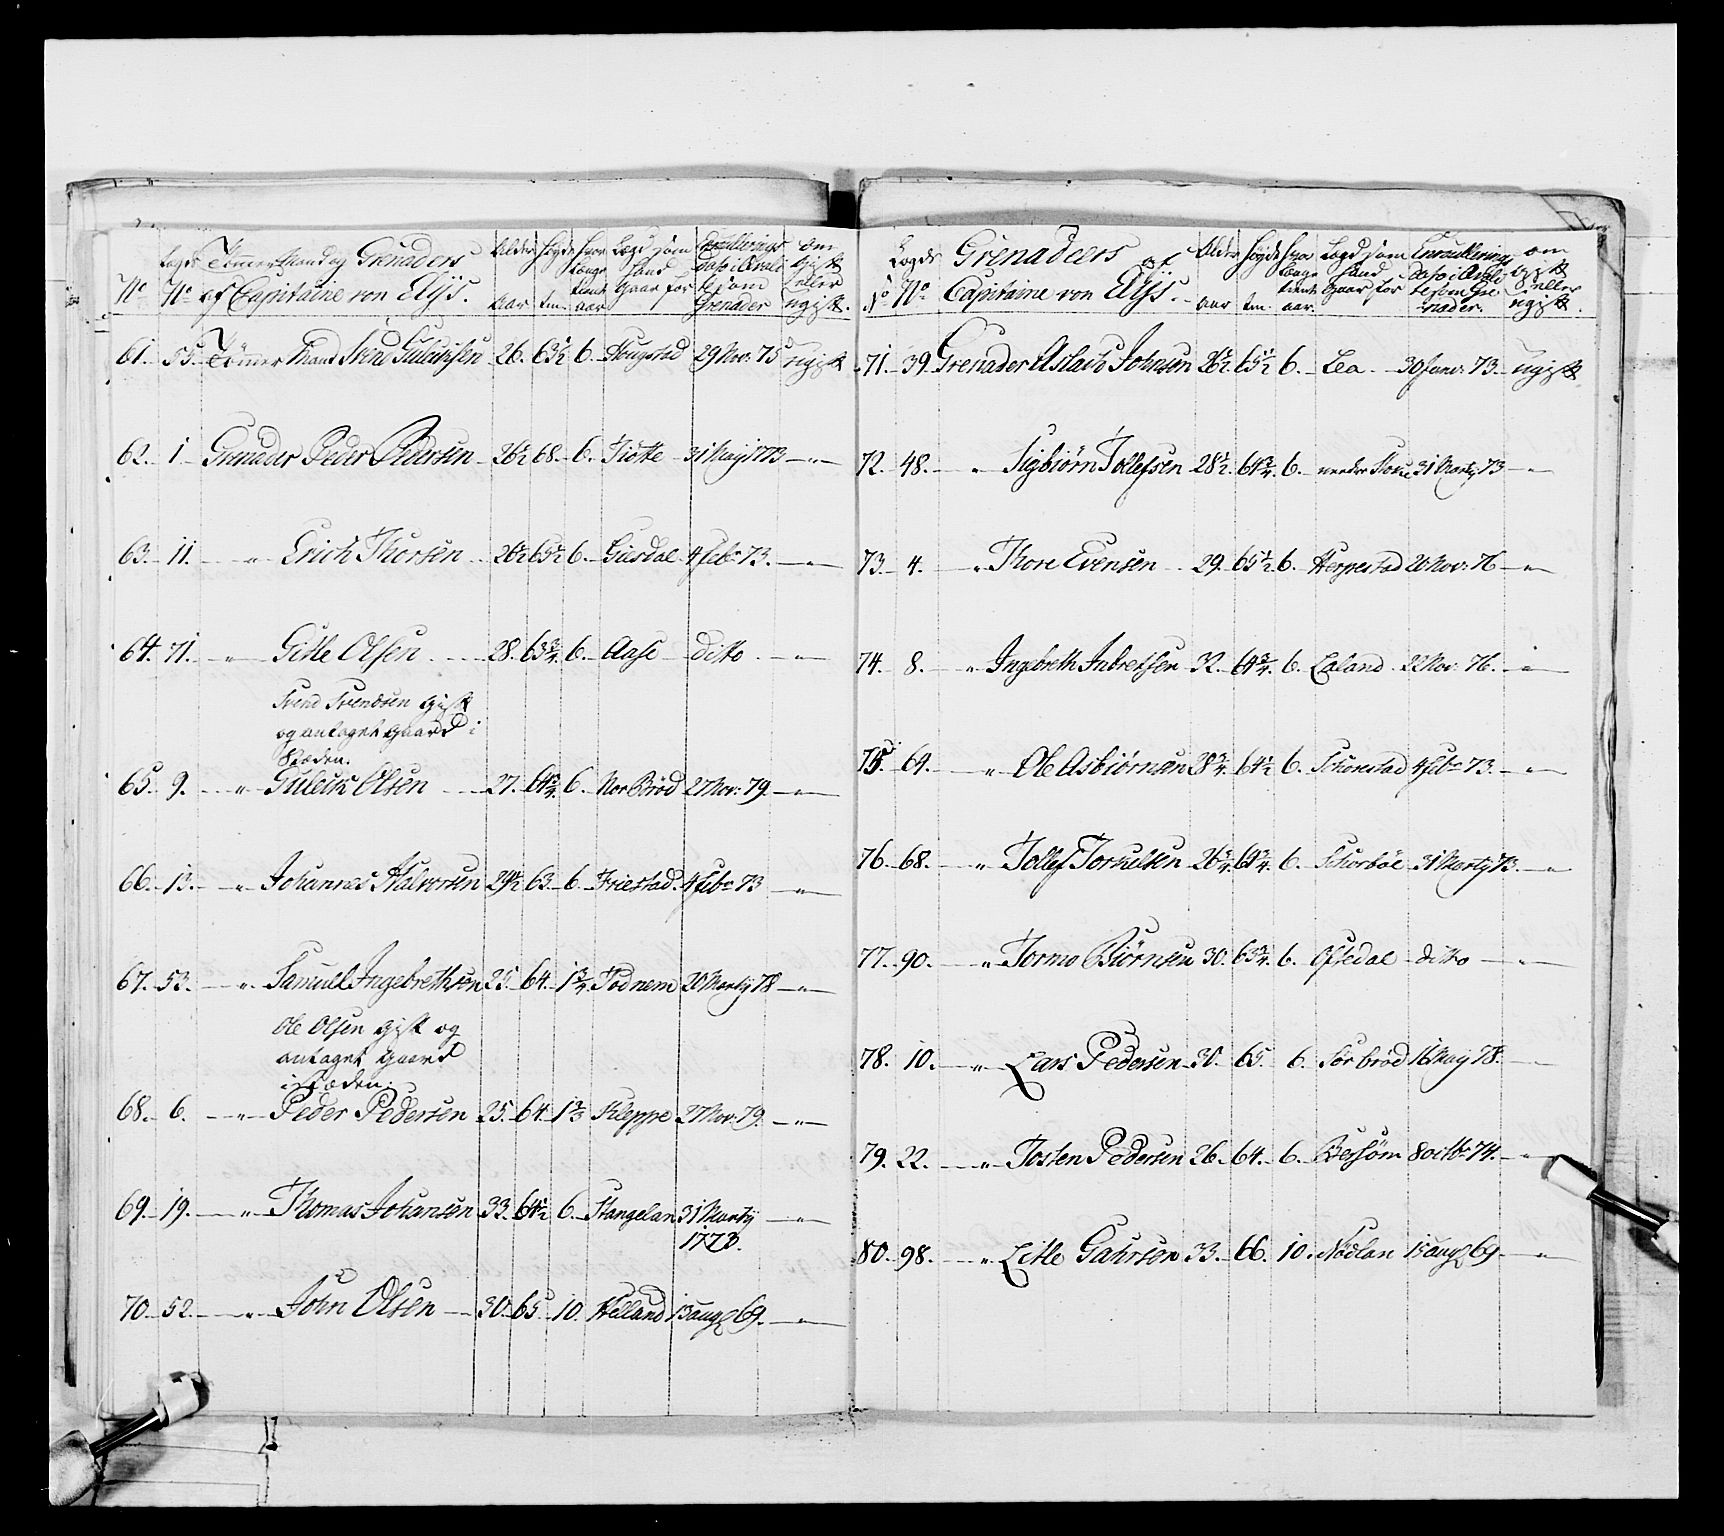 No Lægds No Tømmermand og Grenaders af Capitaine von Elÿs. Alder Aar Høyde tm. hvor Længe tient aar Lægd som hand Gaar for Enroullerings dato i Qvalite som Grenader om gift eller ugift.
61. 55. Tømmermand Svend Gulichsen 26. 63½ 6. Hougstad 29 Nov: 75 ugift
62. 1. Grenader Peder Pedersen 26½ 68. 6. Tiøtte 31 Maÿ 1773 — " —
63. 11. " Erich Thorsen 26½ 65½ 6. Giesdal 4 febr 73. — " —
64. 71. " Gitle Olsen 28. 63¾ 6. Aase ditto — " —
Svend Svendsen gift
og antaget gaard i
Ræden.
65. 9. " Guleich Olsen 27. 64¾ 6. Nor Brød 27 Nov: 79. — " —
66. 13. " Johannes Halvorsen 29½ 63. 6. Friestad 4 febr 73 — " —
67. 53. " Samuel Ingebrethsen 25. 64. 1¾ Todnem 20 Martÿ 78 — " —
Ole Olsen gift og
antaget gaard
i Ræden.
68. 6. " Peder Pedersen 25. 64. 1⅔ Kleppe 27 Nov: 79. — " —
69. 19. " Thomas Johansen 33. 64½ 6. Stangelan 31 Martÿ — " —
1773.
70. 52. " John Olsen 30. 65. 10. Helland 13 aug 69. — " —
No Lægds No Grenadeers af Capitaine von Elÿs. Alder aar Høyde tm. hvor Længe tient aar. Lægd som hand Gaar for Enroullering dato i Qvalite som Gre-nader. om gift eller ugift.
71. 39. Grenader Aslach Johnsen 26½ 65½ 6. Lea 30 Janv: 73. ugift
72. 48. " Sigbiørn Tollefsen 28½ 64¾ 6. nerdre Hove 31 Martÿ 73 — " —
73. 4. " Thore Evensen 29. 65½ 6. Herpestad 20 Nov: 76 — " —
74. 8. " Ingebreth Inbretsen 32. 64¾ 6. Laland 22 Nov: 76. "
75. 64. " Ole Asbiørnsen 28¾ 64½ 6. Schierestad 4 febr 73. — " —
76. 68. " Tollef Torkilsen 26¾ 64¾ 6. Schurbøe 31 Martÿ 73. — " —
77. 90. " Tormo Biørnsen 30. 63¾ 6. Ofsedal ditto — " —
78. 10. " Lars Pedersen 30. 65. 6. Sør brød 16 Maÿ 78. — " —
79. 22. " Josten Pedersen 26. 64. 6. Bersøm 8 octbr 74. — " —
80. 98. " Eitle Gahrsen 33. 66. 10. Nødlan 13 aug 69. — " —